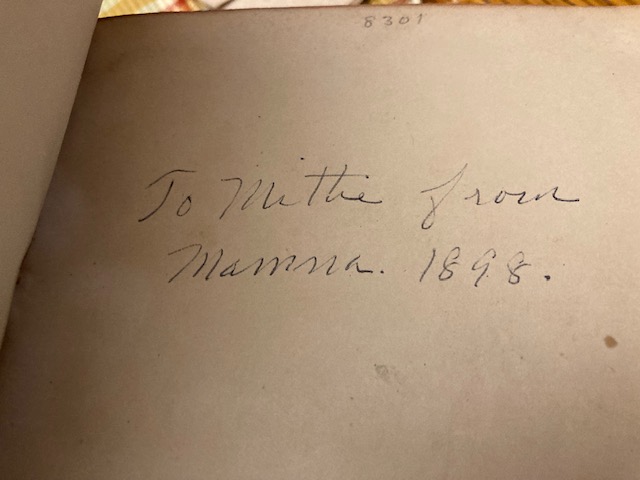 8301
To Mittie from
Mamma. 1898.